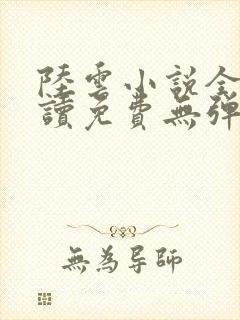 陸雲小說全
讀免費無彈
無為導師